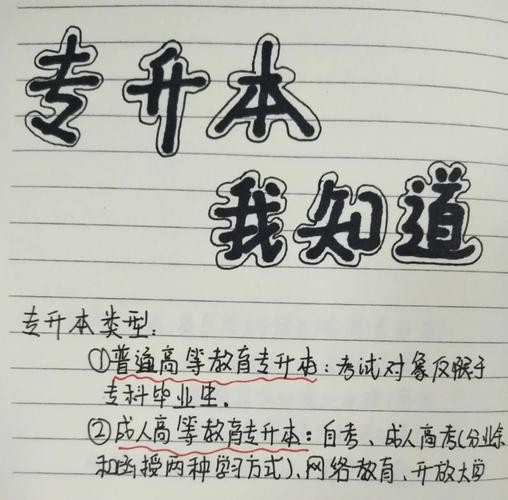 专升本
我知道
专升本类型:
①普通高等教育专升本:考试对象仅限于
专科毕业生.
②成人高等教育专升本:自考、成人高考(分业余
和函授两种学习方式)、网络教育、开放大学